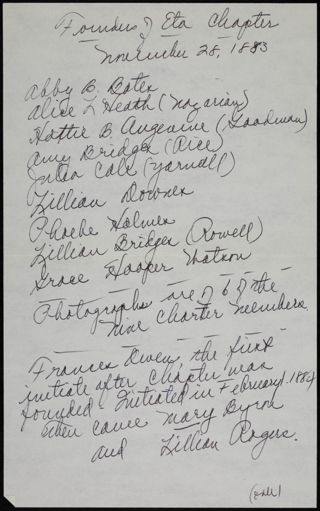 Founders of Eta Chapter
November 28, 1883
Abby B. Bates
Alice L Heath (Nazarian)
Hattie B Angevine (Goodman)
Amy Bridges (Rice)
Julia Cole (Yarnall)
Lillian Downes
Phoebe Holmes
Lillian Bridges (Rowell)
Grace Hooper Watson
Photographs are of 6 of the
Nine Charter Members
Frances Owens, the first
initiate after Chapter was
founded. Initiated in February, 1884
Then came Mary Byron
and Lillian Rogers.